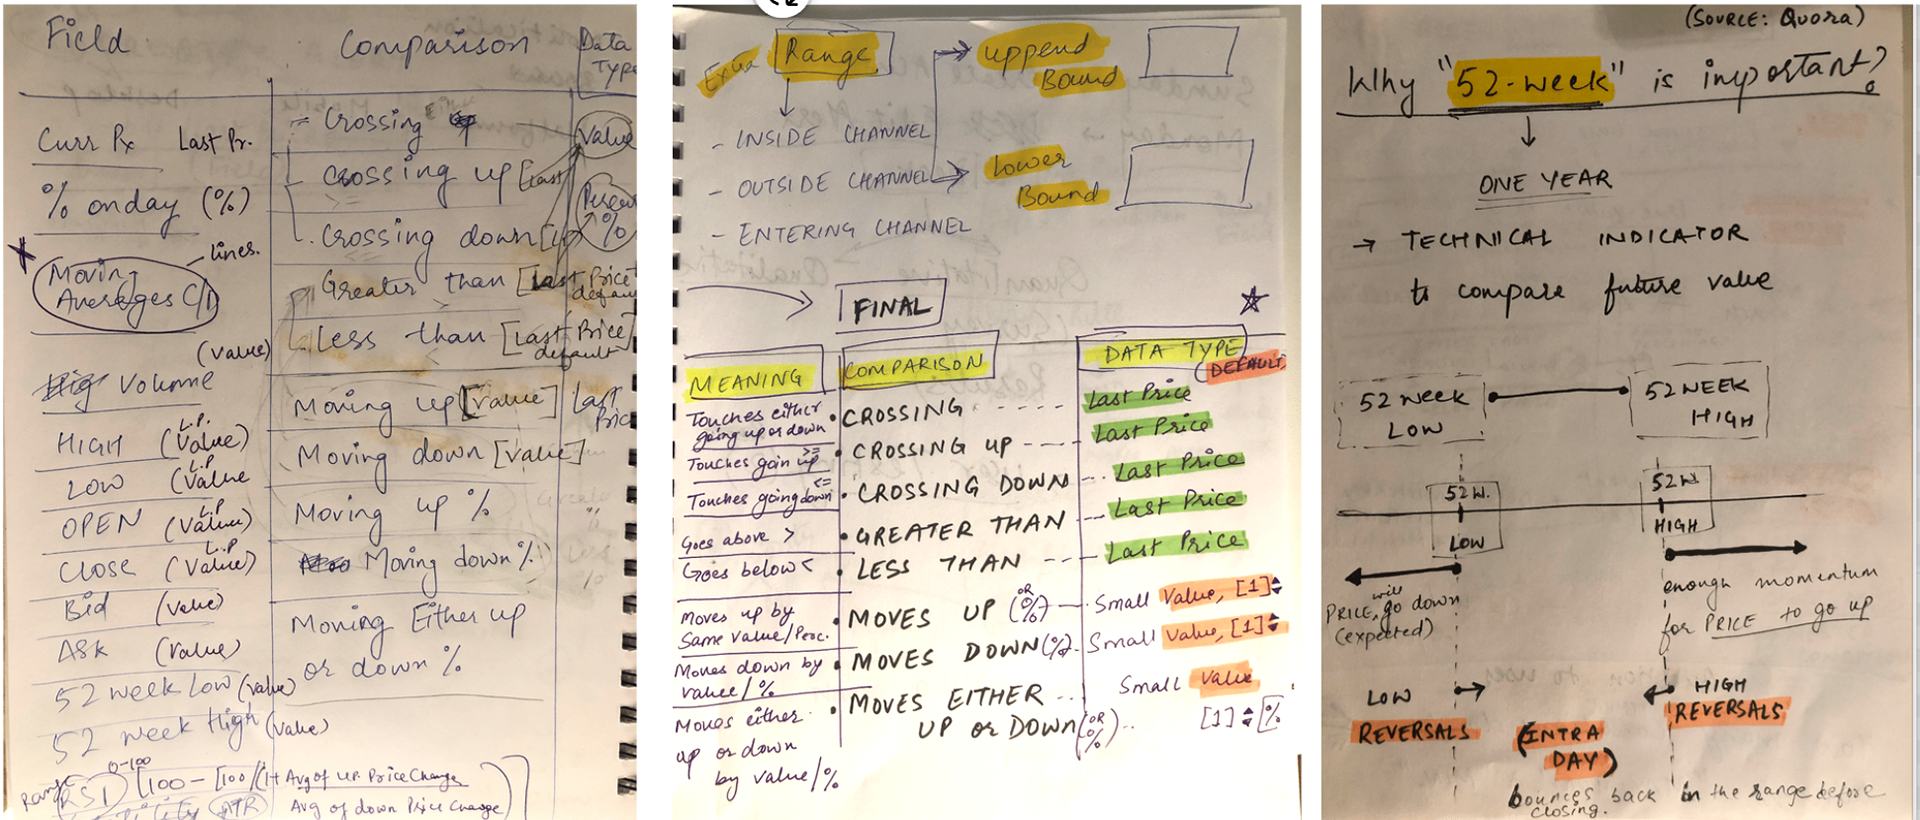 Field
Comparison
Data
Type
Curr Px Last Pr.
% onday (%)
lines.
Moving
Averages C/D
(Value)
Volume
HIGH (Value) L.P.
LOW (Value L.P
OPEN (Value) L.P
CLOSE (Value) L.P
Bid (Value)
ASK (Value)
52 week Low (Value)
52 week High (Value)
Range 0-100
RSI [100 - [100/(1+ Avg of up Price Change
Avg of down Price Change
ATR
= Crossing
Crossing up [Last
>=
Crossing down [
<=
Greater than [Last Price
default
>
Less than [Last Price]
default
<
Moving up [Value] Last
Pric
Moving down [Value]
Moving up %
Moving down %
Moving Either up
or down %
Value
%
Extra
Range
uppend
Bound
- INSIDE CHANNEL
- OUTSIDE CHANNEL
Lower
Bound
- ENTERING CHANNEL
FINAL
MEANING
COMPARISON
DATA TYPE
(DEFAULT)
Touches either
going up or down
• CROSSING - - - - Last Price
Touches goin up >=
• CROSSING UP - - - Last Price
Touches going down <=
• CROSSING DOWN - - Last Price
Goes above >
• GREATER THAN - - Last Price
Goes below <
• LESS THAN - - - Last Price
Moves up by
Same value/Perc.
• MOVES UP (OR %) - - Small Value, [1]
Moves down by
value/%
• MOVES DOWN (%) - Small Value, [1]
Moves either
up or down
by value/%
• MOVES EITHER - -
UP OR DOWN (OR %) - -
Small Value
[1] [%
(SOURCE: Quora)
Why "52-week" is important?
ONE YEAR
→ TECHNICAL INDICATOR
to compare future value
52 week
LOW
52 WEEK
HIGH
52 W.
LOW
52 W.
HIGH
PRICE will go down
(expected)
enough momentum
for PRICE to go up
LOW
REVERSALS
HIGH
REVERSALS
(INTRA
DAY)
bounces back in the range before
closing.